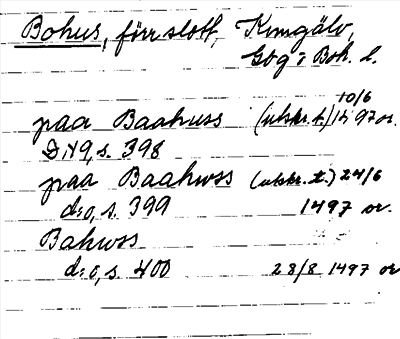 Bohus, förr slott, Kungälv,
Gbg o. Boh. l.
paa Baahuss (utskr. t.) 10/6 1497 or.
DN 9, s. 398
paa Baahwss (utskr. t.) 24/6
d:o, s. 399 1497 or.
Bahwss
d:o, s. 400 28/8 1497 or